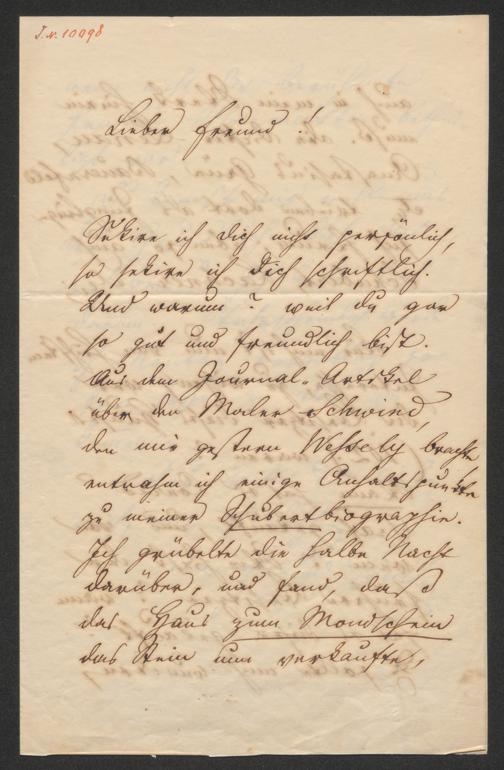 J.N. 10098
Lieber Freund!
Sekire ich Dich nicht persönlich,
so sekire ich Dich schriftlich.
Und warum? weil Du gar
so gut und freundlich bist.
Aus dem Journal-Artikel
über den Maler Schwind,
den mir gestern Wessely brachte
entnahm ich einige Anhaltspunkte
zu meiner Schubertbiographie.
Ich grübelte die halbe Nacht
darüber, und fand, daß
das Haus zum Mondschein
das nun verkaufte,